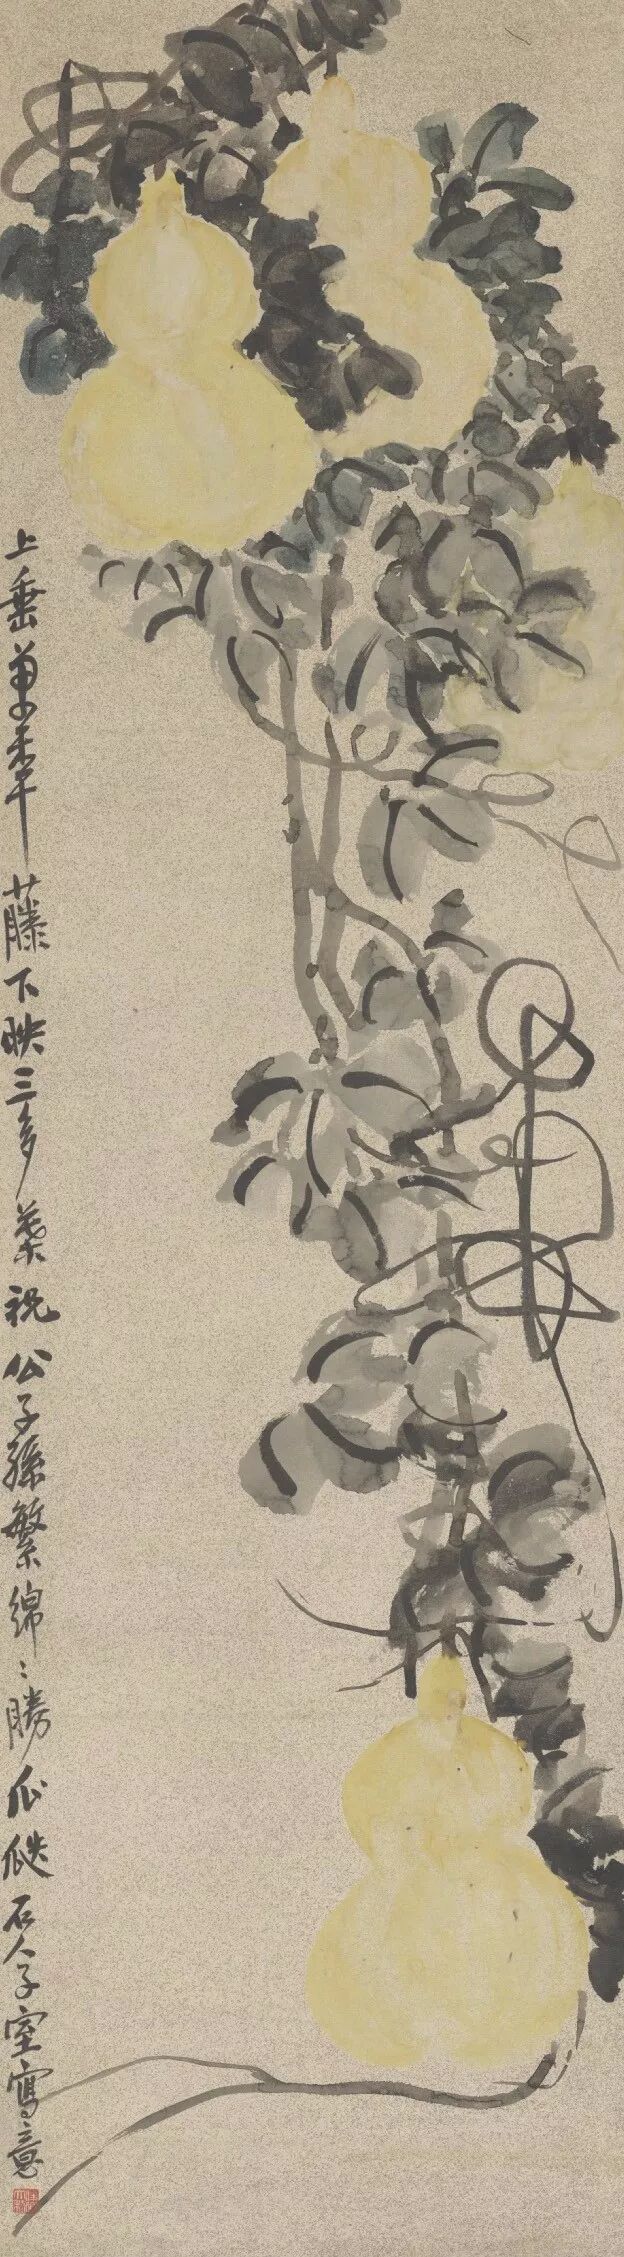 上垂萬秊藤下映三多葉祝公子孫繁綿〻勝瓜瓞石人子室寫意